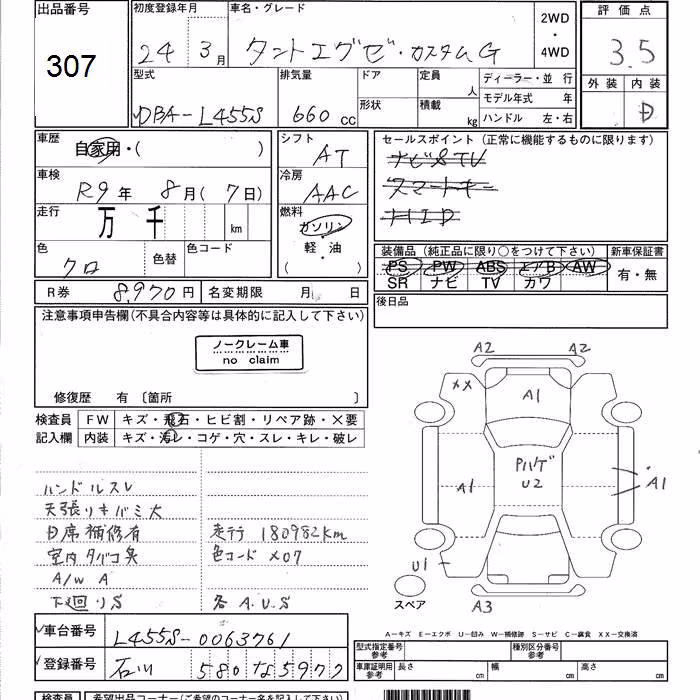 出品番号
307
初度登録年月
24 3月
車名・グレード
タントエグゼ・カスタムG
2WD
・
4WD
評価点
3.5
外装 内装
D
型式
DBA-L455S
排気量
660 cc
ドア
形状
定員
人
積載
kg
ディーラー・並行
モデル年式 年
ハンドル 左・右
車歴
自家用・( )
シフト
AT
車検
R9年 8月(7日)
冷房
AAC
走行
万 千 km
燃料
ガソリン
軽・油
( )
色
クロ
色替
色コード
R券 8,970円
名変期限 月 日
セールスポイント(正常に機能するものに限ります)
ナビ&TV
スマートキー
HID
装備品(純正品に限り○をつけて下さい)
PS PW ABS エアB AW
SR ナビ TV カワ
新車保証書
有・無
後日品
注意事項申告欄(不具合内容等は具体的に記入して下さい)
ノークレーム車
no claim
修復歴 有 〔箇所 〕
検査員
記入欄
FW キズ・飛石・ヒビ割・リペア跡・×要
内装 キズ・汚レ・コゲ・穴・スレ・キレ・破レ
ハンドルスレ
天張りキバミ大
日席補修有
室内タバコ臭
A/W A
下廻りS
走行 180982km
色コード X07
各A.U.S
A2 A2
XX
A1
Pハゲ
U2
A1
A1
U1
A3
スペア
A-キズ E-エクボ U-凹み W-補修跡 S-サビ C-腐食 XX-交換済
車台番号 L455S-0063761
登録番号 石川 580 な 5977
型式指定番号
参考
種別区分番号
参考
車庫証明用
参考
長さ cm
幅 cm
高さ cm
検査員
希望出品コーナー(ご希望のコーナー名を記入して下さい)